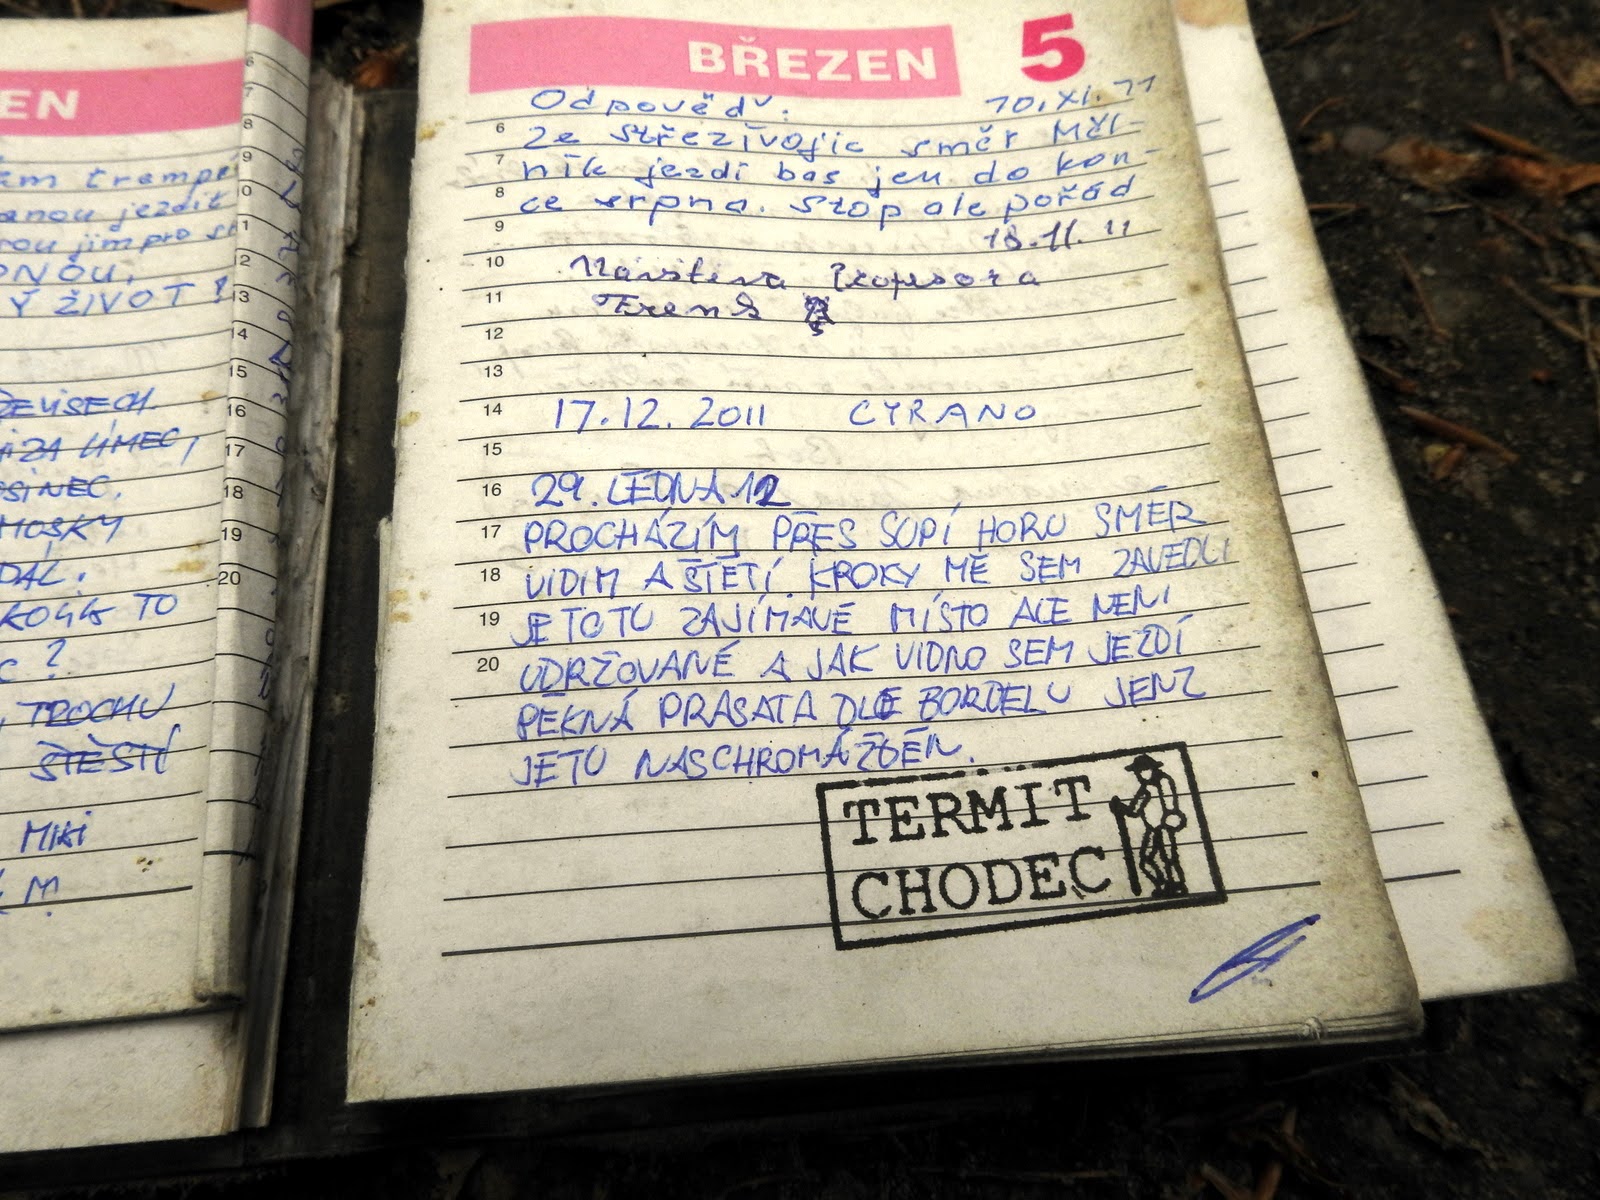 EN
ám trampé
anou jezdit
rou jim pro st
ONOU,
Ý ŽIVOT!
ZEVŠECH
ZA LÍMEC,
SINEC.
MOSKY
DÁL.
KOLIK TO
C ?
, TROCHU
ŠTĚSTÍ
MIKI
M.
BŘEZEN 5
Odpověď: 10.XI.11
6 Ze Střezivojic směr Měl-
7 ník jezdí bas jen do kon-
8 ce srpna. Stop ale pořád
9 13.11.11
10 Návštěva Profesora
11
12
13
14 17.12.2011 CYRANO
15
16 29. LEDNA 12
17 PROCHÁZÍM PŘES SOPÍ HORU SMĚR
18 VIDIM A ŠTĚTÍ. KROKY MĚ SEM ZAVEDLI
19 JE TO TU ZAJÍMAVÉ MÍSTO ALE NENI
20 UDRŽOVANÉ A JAK VIDNO SEM JEZDÍ
PĚKNÁ PRASATA DLE BORDELU JENZ
JE TU NASCHROMÁŽDĚN.
TERMIT
CHODEC
6
7
8
9
0
1
12
13
14
15
16
17
18
19
20